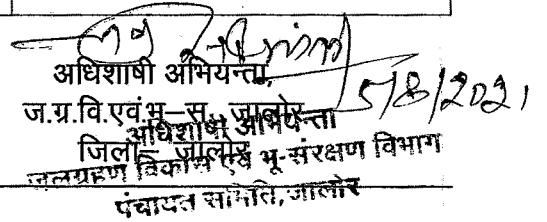 5/8/2021
अधिशाषी अभियन्ता,
ज.ग्र.वि.एवं.भू–स., जालोर
जिला– जालोर
अधिशाषी अभियन्ता
जलग्रहण विकास एवं भू-संरक्षण विभाग
पंचायत समिति, जालोर